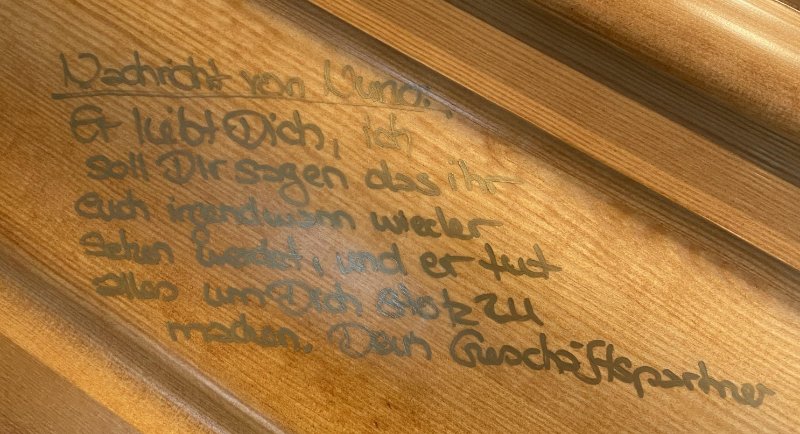 Nachricht von Nuno.,
Er leibt Dich, ich
soll Dir sagen das ihr
euch irgendwann wieder
sehen werdet, und er tut
alles um Dich stolz zu
machen, Dein Geschäftspartner